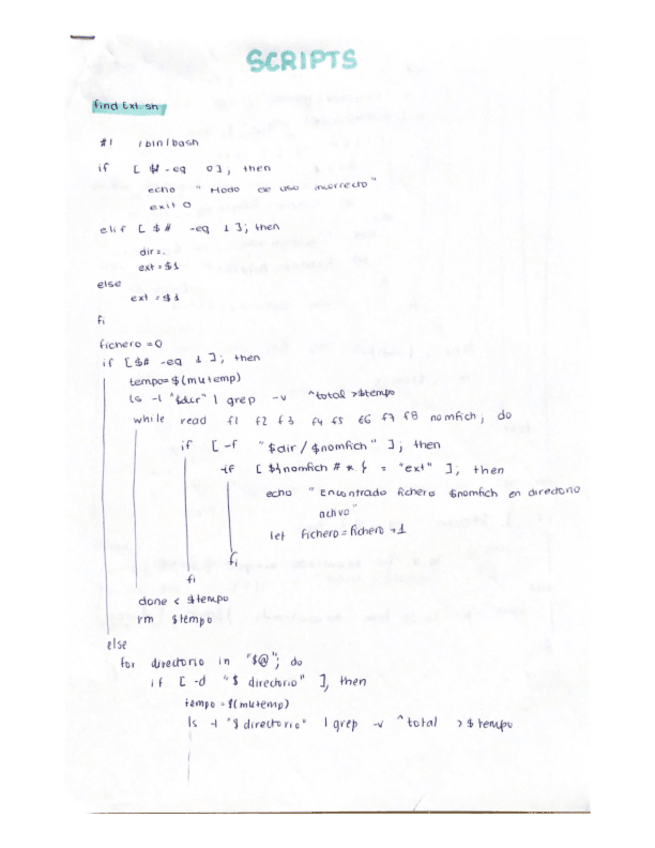 SCRIPTS
find Ext.sh
#! /bin/bash
if [ $# -eq 0]; then
echo "Modo de uso incorrecto"
exit 0
elif [ $# -eq 1 ]; then
dir=.
ext=$1
else
ext=$1
fi
fichero=0
if [$# -eq 1 ]; then
tempo=$(mutemp)
ls -l "$dir" | grep -v ^total >$tempo
while read f1 f2 f3 f4 f5 f6 f7 f8 nomfich; do
if [ -f "$dir/$nomfich" ]; then
if [ ${nomfich#*} = "ext" ]; then
echo "Encontrado fichero $nomfich en directorio
activo"
let fichero=fichero+1
fi
fi
done < $tempo
rm $tempo
else
for directorio in "$@"; do
if [ -d "$directorio" ], then
tempo=$(mutemp)
ls -l "$directorio" | grep -v ^total >$tempo